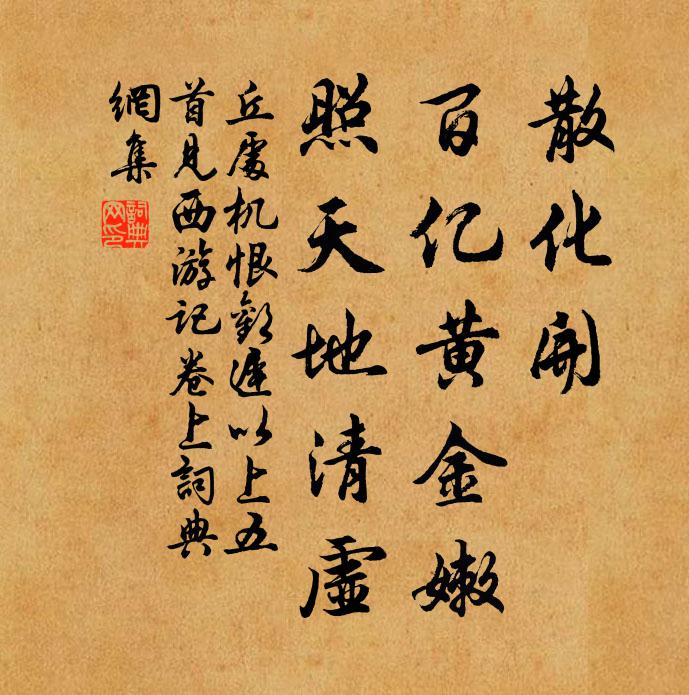 散化開
百亿黄金嫩
照天地清虛
丘處机恨歡遲以上五
首見西游记卷上詞典
網集
詞典
网印